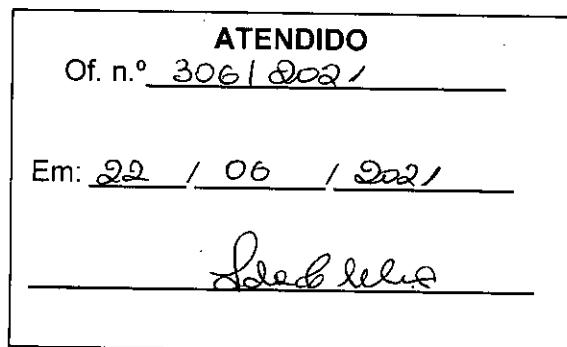 ATENDIDO
Of. n.º 306/2021
Em: 22 / 06 / 2021